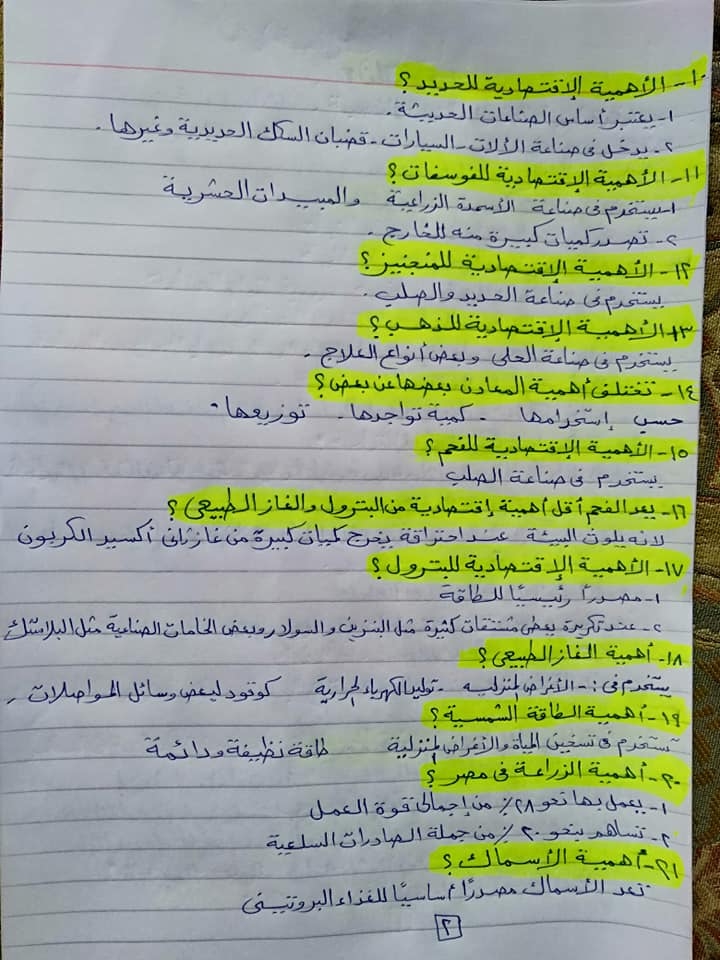 ١٠- الأهمية الإقتصادية للحديد ؟
١- يعتبر أساس الصناعات الحديثة .
٢- يدخل فى صناعة الألات - السيارات - قضبان السكك الحديدية وغيرها .
١١- الأهمية الإقتصادية للفوسفات ؟
١- يستخدم فى صناعة الأسمدة الزراعية والمبيدات الحشرية
٢- تصدر كميات كبيرة منه للخارج .
١٢- الأهمية الإقتصادية للمنجنيز ؟
يستخدم فى صناعة الحديد والصلب .
١٣- الأهمية الإقتصادية للذهب ؟
يستخدم فى صناعة الحلى وبعض أنواع العلاج .
١٤- تختلف أهمية المعادن بعضها عن بعض ؟
حسب إستخدامها - كمية تواجدها - توزيعها .
١٥- الأهمية الإقتصادية للفحم ؟
يستخدم فى صناعة الصلب
١٦- يعد الفحم أقل أهمية إقتصادية من البترول والغاز الطبيعى ؟
لانه يلوث البيئة عند احتراقة يخرج كميات كبيرة من غاز ثانى أكسيد الكربون
١٧- الأهمية الإقتصادية للبترول ؟
١- مصدراً رئيسيًا للطاقة
٢- عند تكريرة يعطى مشتقات كثيرة مثل البنزين والسولار وبعض الخامات الصناعية مثل البلاستك
١٨- أهمية الغاز الطبيعى ؟
يستخدم فى :- الأغراض المنزليه - توليد الكهرباء الحرارية كوقود لبعض وسائل المواصلات .
١٩- أهمية الطاقة الشمسية ؟
تستخدم فى تسخين المياة والأغراض المنزلية طاقة نظيفة ودائمة
٢٠- أهمية الزراعة فى مصر ؟
١- يعمل بها نحو ٢٨٪ من إجمالى قوة العمل
٢- تساهم بنحو ٢٠٪ من جملة الصادرات السلعية
٢١- أهمية الأسماك ؟
تعد الأسماك مصدرًا أساسيًا للغذاء البروتينى
٢